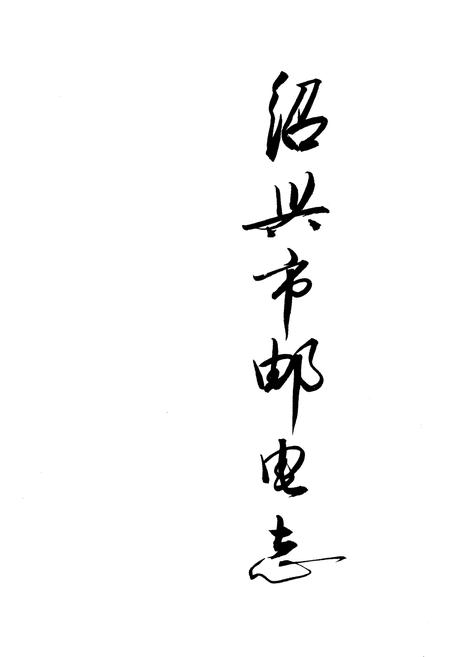 绍兴市邮电志